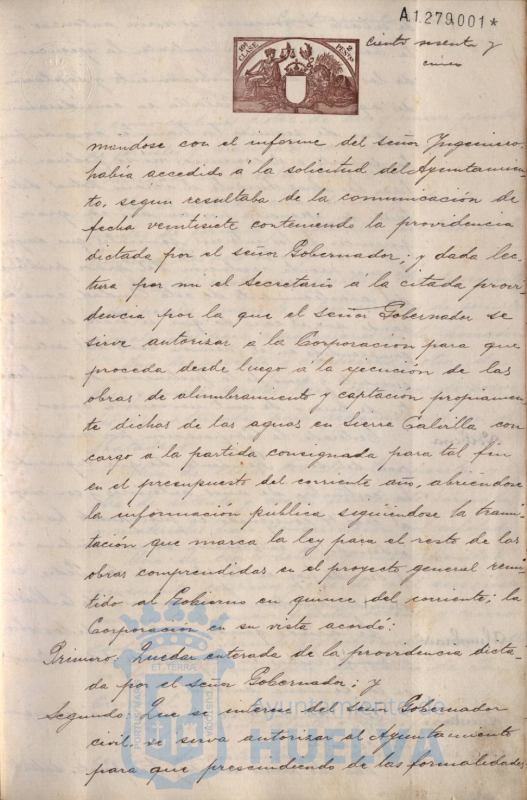 A1.279.001*
10ª CLASE
2 PESETAS
ciento sesenta y
cinco
mándose con el informe del señor Yngeniero,
había accedido á la solicitud del Ayuntamien-
to, segun resultaba de la comunicación de
fecha veintisiete conteniendo la providencia
dictada por el señor Gobernador; y dada lec-
tura por mi el Secretario á la citada provi-
dencia por la que el señor Gobernador se
sirve autorizar á la Corporación para que
proceda desde luego á la ejecución de las
obras de alumbramiento y captación propiamen-
te dichas de las aguas en Sierra Calvilla con
cargo á la partida consignada para tal fin
en el presupuesto del corriente año, abriéndose
la información pública siguiéndose la trami-
tación que marca la ley para el resto de las
obras comprendidas en el proyecto general remi-
tido al Gobierno en quince del corriente; la
Corporación en su vista acordó:
Primero. Quedar enterada de la providencia dicta-
da por el señor Gobernador; y
Segundo. Que se interese del señor Gobernador
civil, se sirva autorizar al Ayuntamiento
para que prescindiendo de las formalidades
ET TERRA
Ayuntamiento de
HUELVA